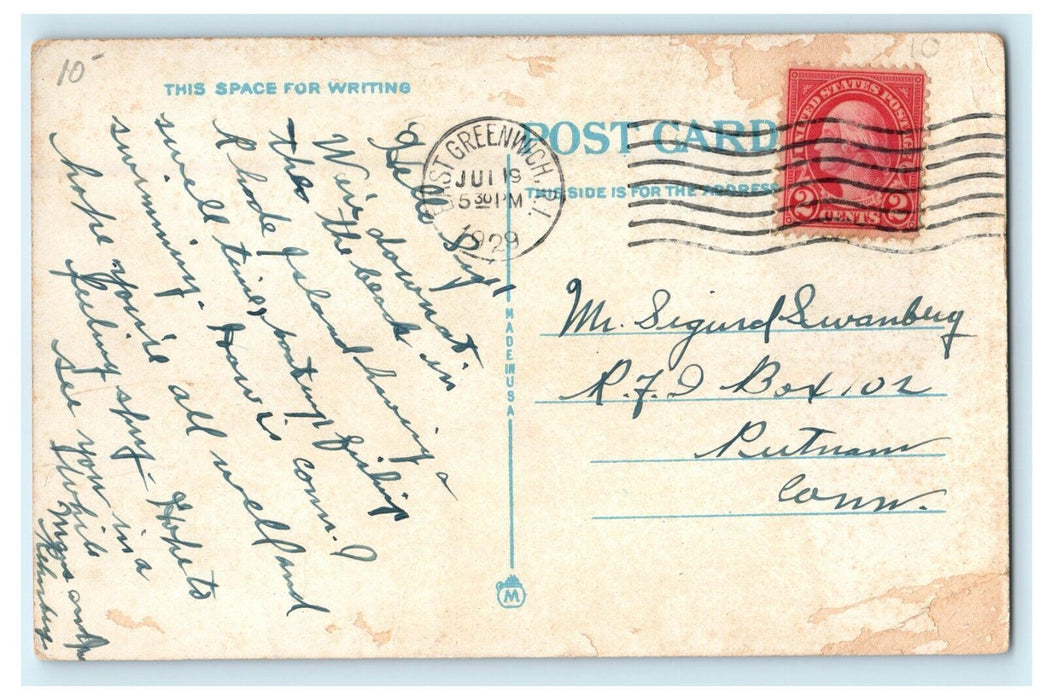 10
10
THIS SPACE FOR WRITING
POST CARD
THIS SIDE IS FOR THE ADDRESS
UNITED STATES POSTAGE
2 CENTS 2
EAST GREENWICH, R.I.
JUL 19
5 30 PM
1929
MADE IN USA
M
Hello Sig"
We're down at
the beach in
Rhode Island having a
swell time, boating, fishing
swimming. How is Conn. I
hope you're all well and
feeling spry – Hope to
see you in a
while
Mr. Sigurd Swanberg
R.F.D Box 102
Putnam
Conn.